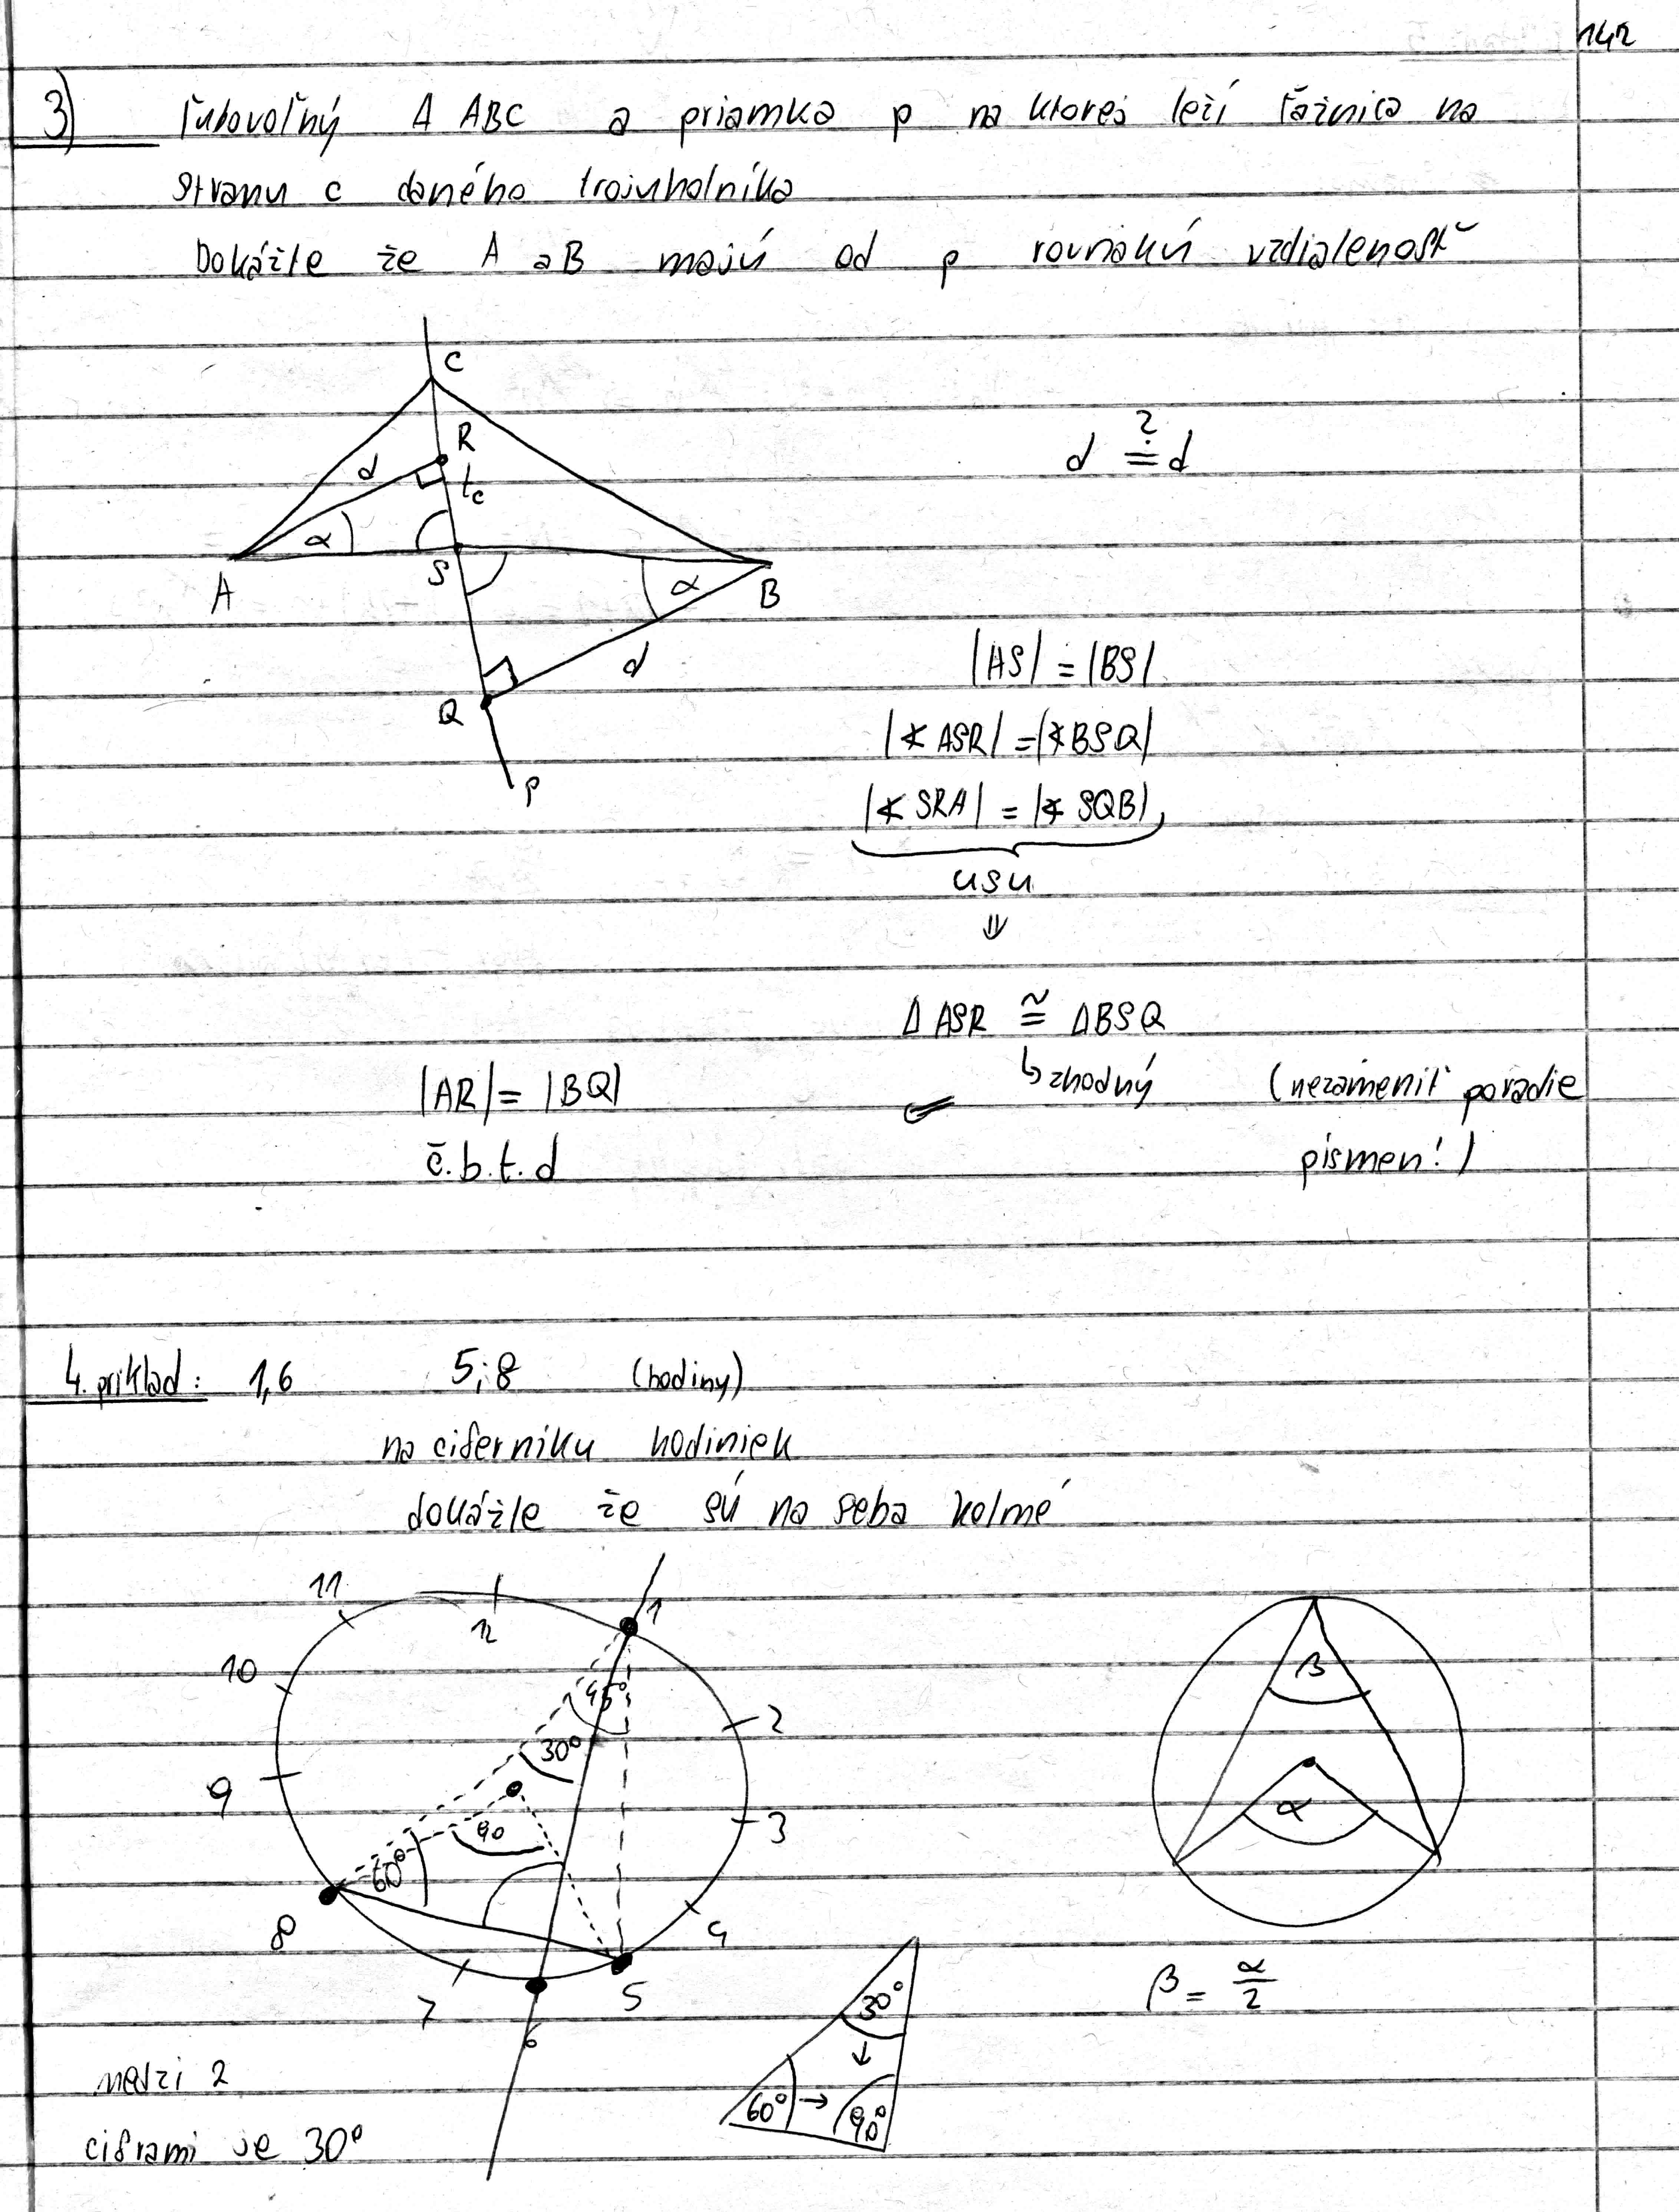 142
3) Ľubovoľný Δ ABC a priamka p na ktorej leží ťažnica na
stranu c daného trojuholníka
Dokážte že A a B majú od p rovnakú vzdialenosť
C
R
d
tc
α
S
A
α
B
d
Q
p
d ≟ d
|AS| = |BS|
|∢ ASR| = |∢ BSQ|
|∢ SRA| = |∢ SQB|
usu
⇓
Δ ASR ≅ Δ BSQ
↳ zhodný (nezameniť poradie
písmen!)
|AR| = |BQ|
č.b.t.d
4. príklad: 1,6 5;8 (hodiny)
na ciferníku hodiniek
dokážte že sú na seba kolmé
11
12
1
10
45°
2
30°
9
90
3
60°
8
4
7
5
6
β
α
β = α/2
30°
60° → 90°
medzi 2
ciframi je 30°